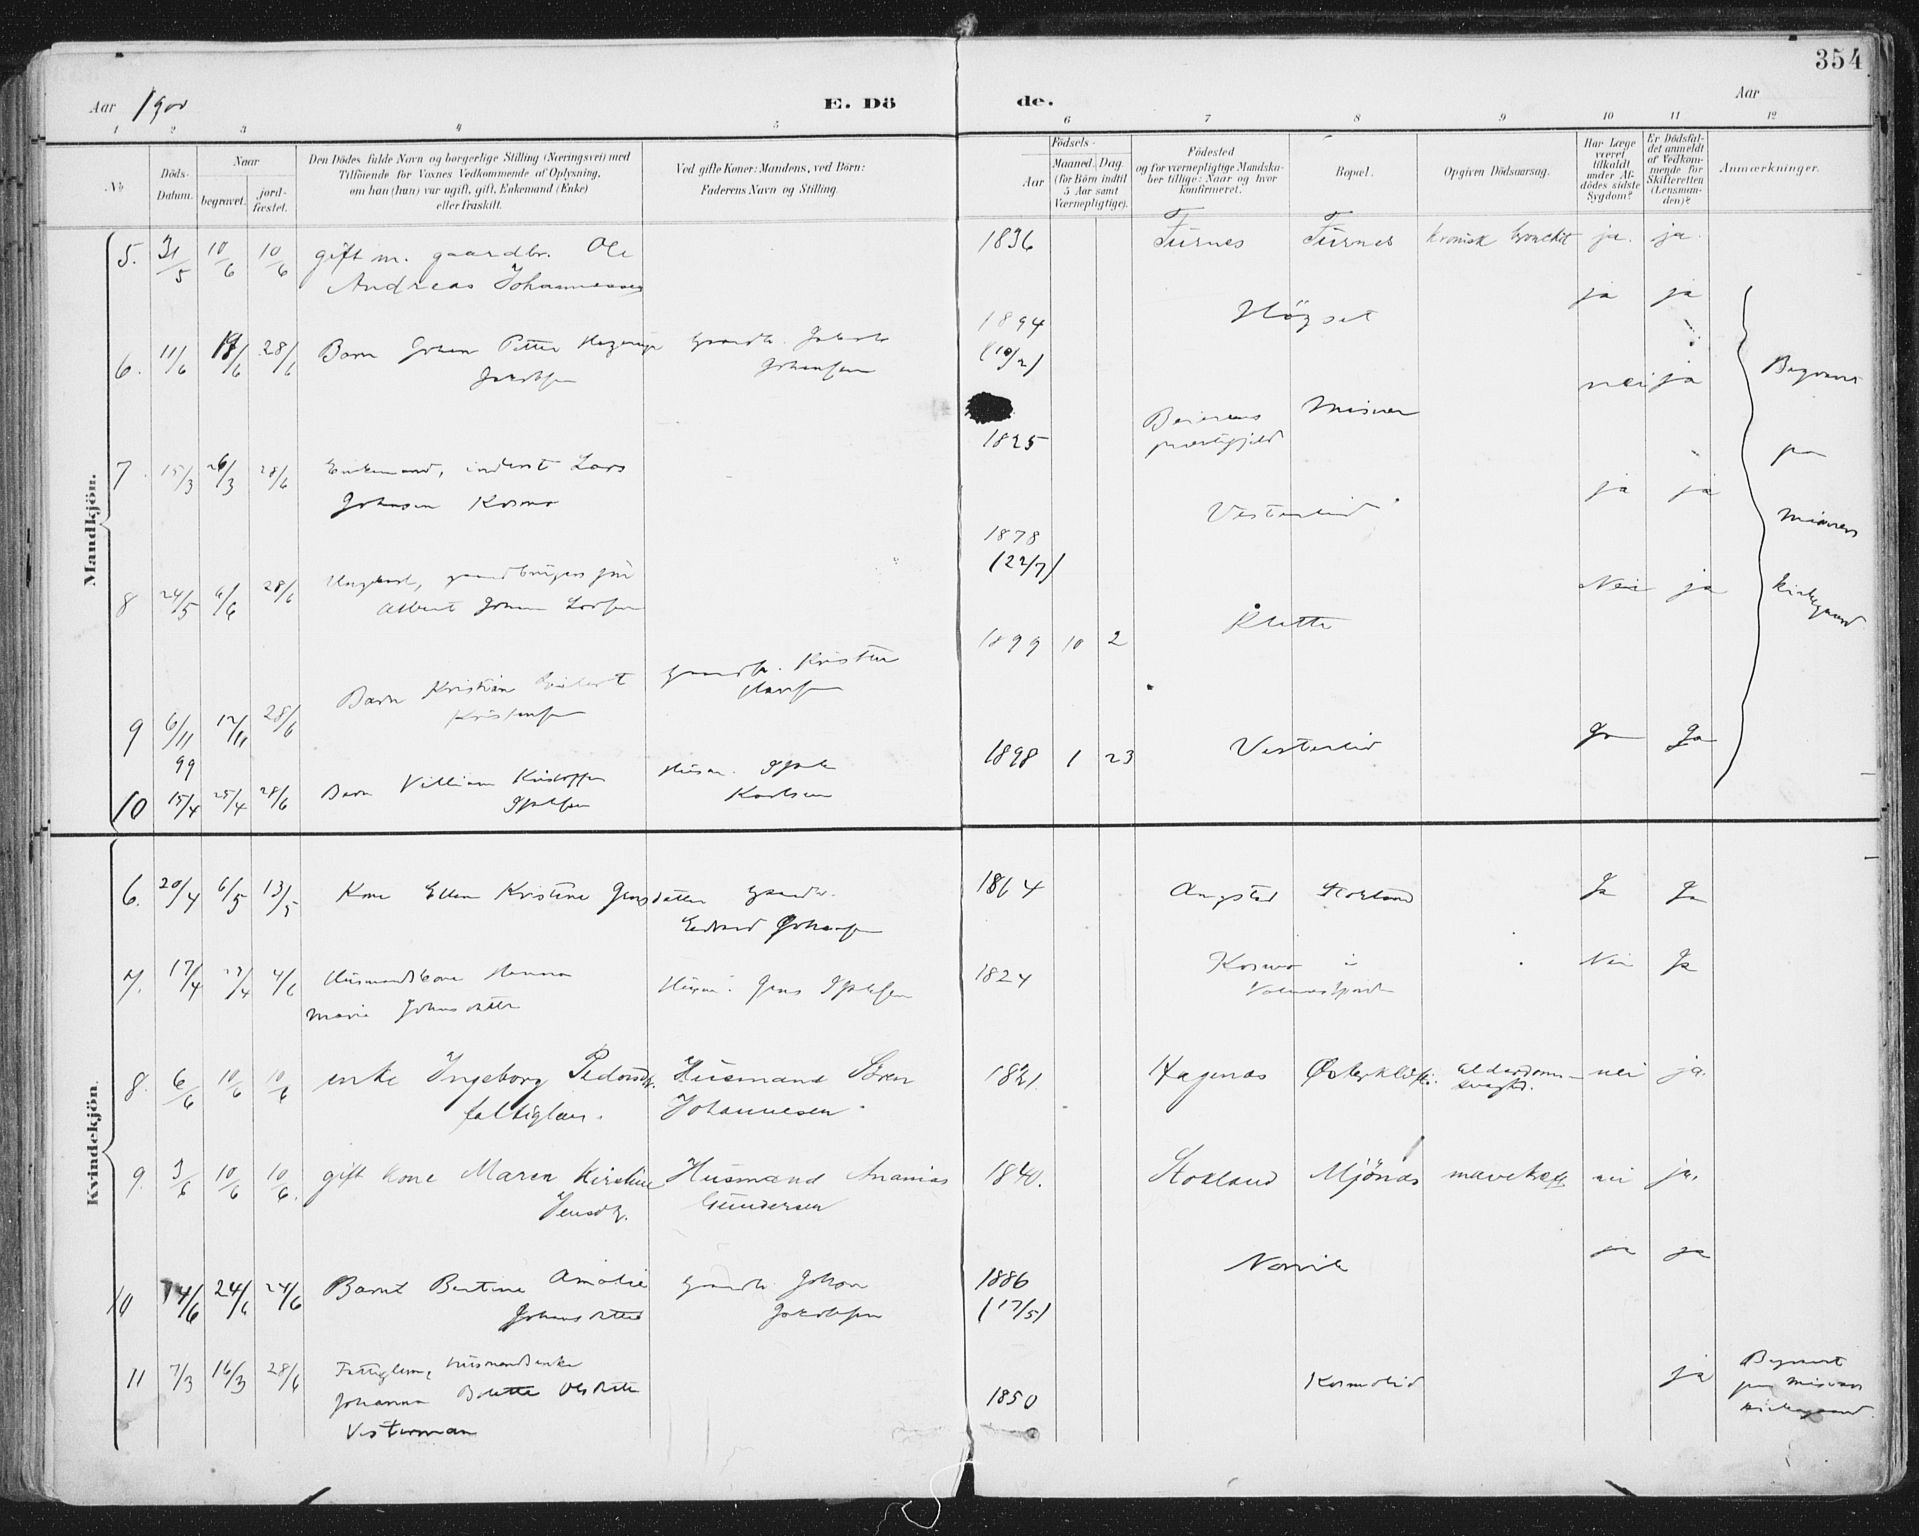 354
Aar 1900
E. Dö
de.
Aar
1 2 3 4 5 6 7 8 9 10 11 12
No
Döds-
Datum.
Naar
begravet.
jord-
fæstet.
Den Dödes fulde Navn og borgerlige Stilling (Næringsvei) med
Tilföiende for Voxnes Vedkommende af Oplysning,
om han (hun) var ugift, gift, Enkemand (Enke)
eller fraskilt.
Ved gifte Koner: Mandens, ved Börn:
Faderens Navn og Stilling.
Födsels-
Aar
Maaned. Dag.
(for Börn indtil
5 Aar samt
Værnepligtige).
Födested
og for værnepligtige Mandska-
ber tillige: Naar og hvor
konfirmeret.
Bopæl.
Opgiven Dödsaarsag.
Har Læge
været
tilkaldt
under Af-
dödes sidste
Sygdom?
Er Dödsfal-
det anmeldt
af Vedkom-
mende for
Skifteretten
(Lensman-
den)?
Anmærkninger.
Mandkjön.
5. 31/5 10/6 10/6 gift m. gaardbr. Ole 1836 Furnes Furnes kronisk bronchit ja. ja.
Andreas Johannessen
6. 11/6 28/6 Barn Johan Petter gaardb. Jakob 1894 Högset ja ja
Jakobsen Johansen (10/2)
7 15/3 26/3 28/6 Enkemand, inderst Lars 1825 Beierens Misvær nei ja
Johnsen Kosmo præstegjeld
8 24/5 6/6 28/6 Ungkarl, gaardbrugers sön 1878 Vesterlid ja ja
Albert Johan Larsen (22/7)
9 6/11 99 17/11 28/6 Barn Kristian gaardb. Kristen 1899 10 2 Klette Nei ja
Kristensen
10 15/4 25/4 28/6 Barn Villiam Kristoffer Husm. 1898 1 23 Vesterlid Ja Ja
Karlsen
Begravet
paa
Misvær
kirkegaard
Kvindekjön.
6. 20/4 6/5 13/5 Kone Ellen Kristine Jensdatter gaardb. 1864 Angstad Stokland Ja Ja
Edvard Johansen
7. 17/4 29/4 4/6 Husmandskone Hanna Husm. Jens 1824 Kosmo i Nei Ja
Marie Johnsdatter
8. 6/6 10/6 10/6 enke Ingeborg Pedersdtr. Husmand Sören 1821. Hagenæs Østerkløft. alderdoms- nei ja.
fattiglem. Johannesen svaghd.
9. 3/6 10/6 10/6. gift kone Maren Kirstine Husmand Ananias 1840. Stokland Mjönæs mavekræft nei ja.
Jensdtr. Gundersen
10 14/6 24/6 24/6 Barnet Bertine Amalie gaardb. Johan 1886 Norvik ja ja
Johansdatter Jakobsen (17/5)
11 7/3 16/3 28/6 Fattiglem, husmandsenke 1850 Kosmolid ja Begravet
Johanna Bolette Olsdatter paa Misvær
Vesterman kirkegaard.